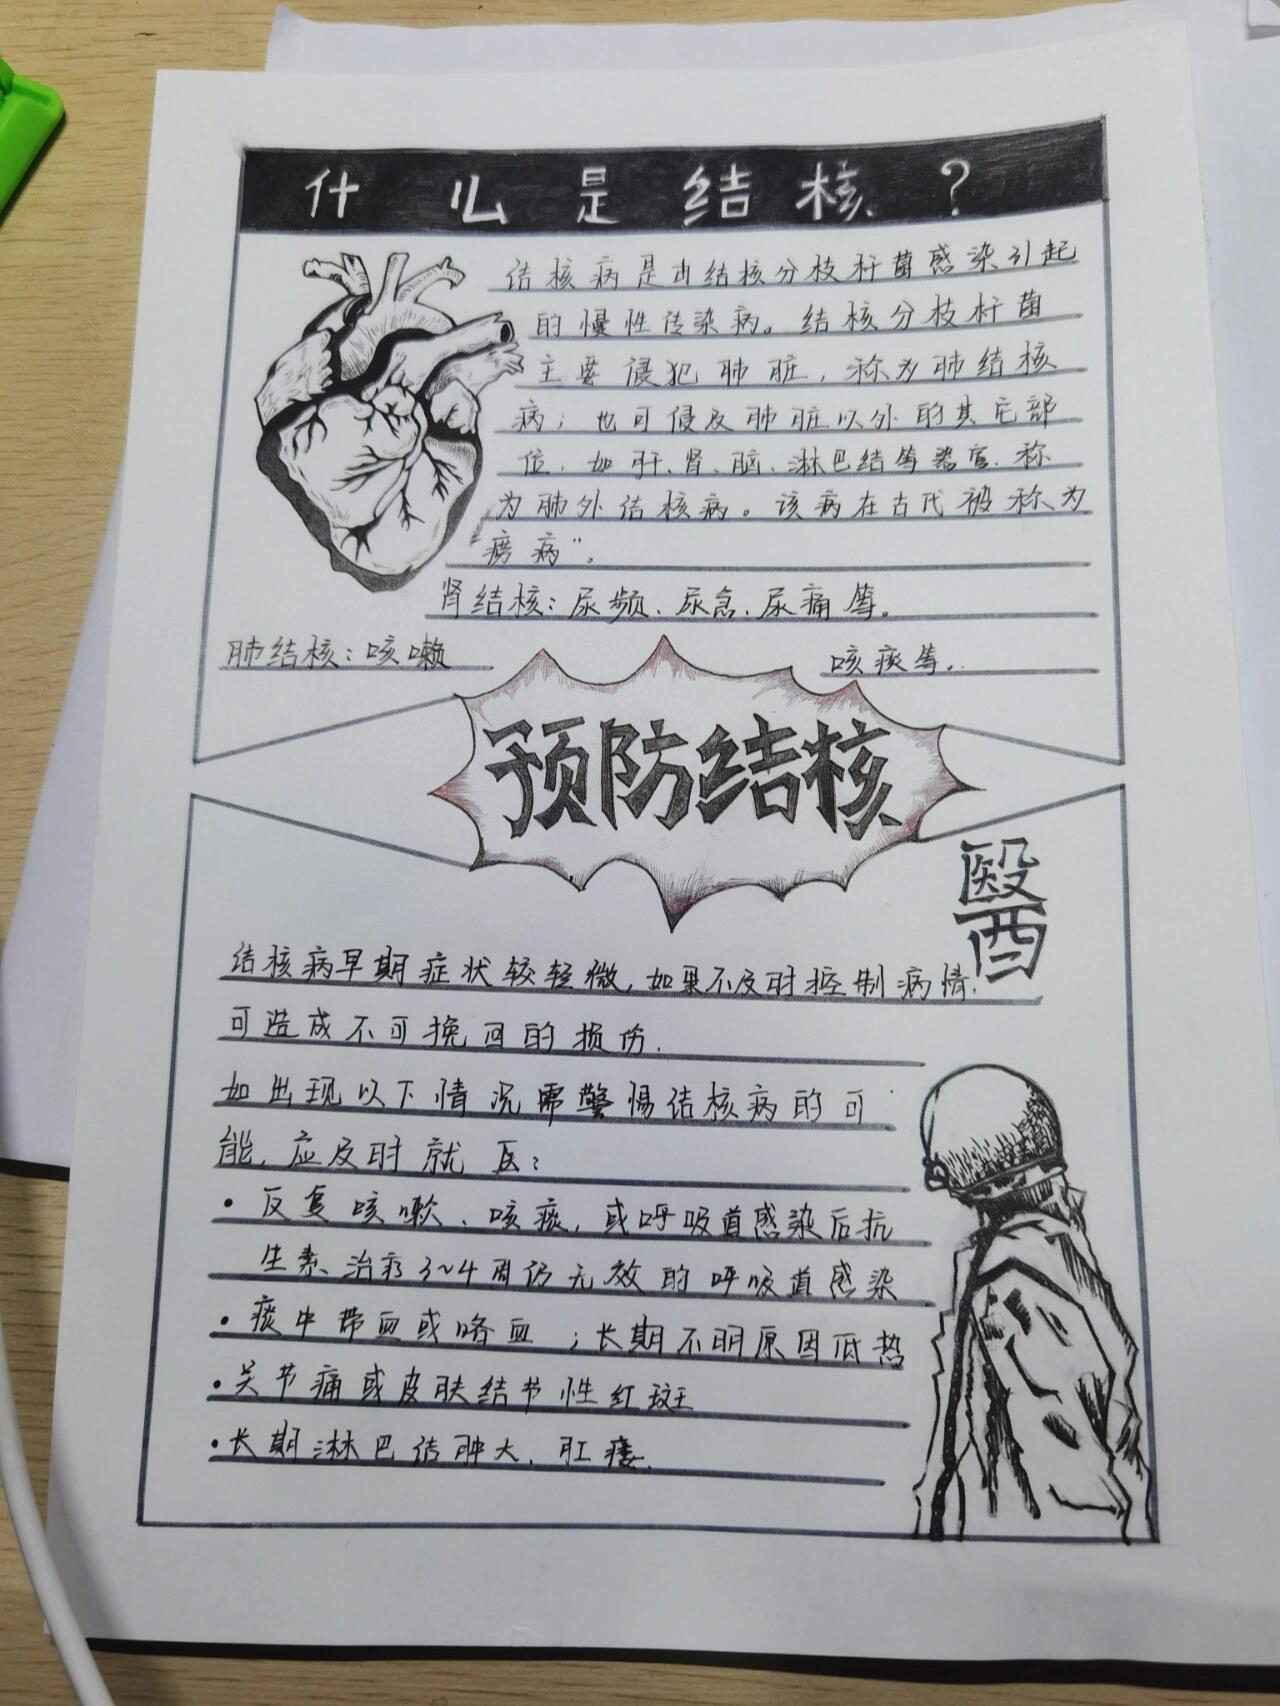 什么是结核？
结核病是由结核分枝杆菌感染引起
的慢性传染病。结核分枝杆菌
主要侵犯肺脏，称为肺结核
病；也可侵及肺脏以外的其它部
位，如肝、肾、脑、淋巴结等器官，称
为肺外结核病。该病在古代被称为
“痨病”。
肾结核：尿频、尿急、尿痛等。
肺结核：咳嗽 咳痰等。
预防结核
醫
结核病早期症状较轻微，如果不及时控制病情，
可造成不可挽回的损伤.
如出现以下情况需警惕结核病的可
能，应及时就医：
·反复咳嗽、咳痰，或呼吸道感染后抗
生素治疗3~4周仍无效的呼吸道感染
·痰中带血或咯血；长期不明原因低热
·关节痛或皮肤结节性红斑
·长期淋巴结肿大、肛瘘.